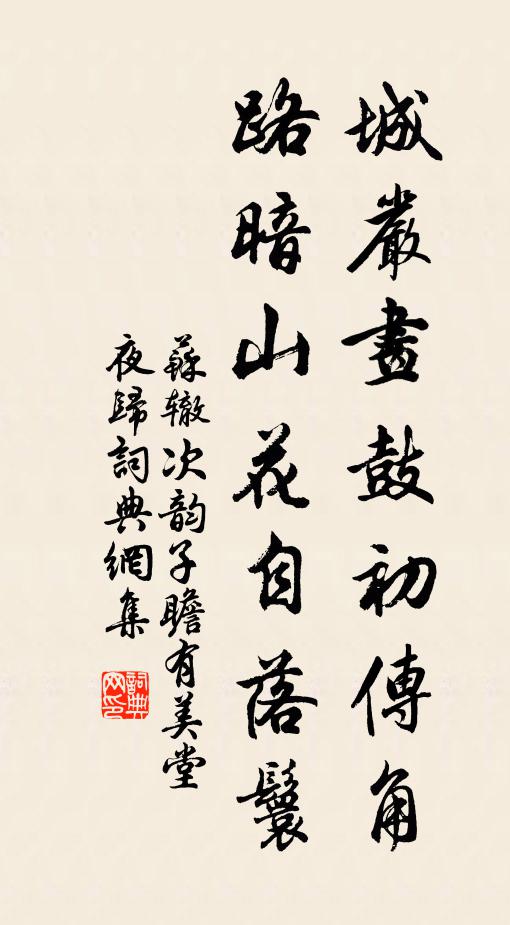 城嚴畫鼓初傳角
路暗山花自落鬟
蘇轍次韵子瞻有美堂
夜歸詞典網集
詞典
网印